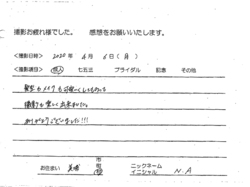 撮影お疲れ様でした。 感想をお願いいたします。
<撮影日時> 2020 年 4月 6日(月)
<撮影項目> 個人 七五三 ブライダル 記念 その他
髪型もメイクも可愛くしてもらって
撮影も楽しく出来ました。
ありがとうございました!!!
お住まい 市 町 ニックネーム
イニシャル N.A